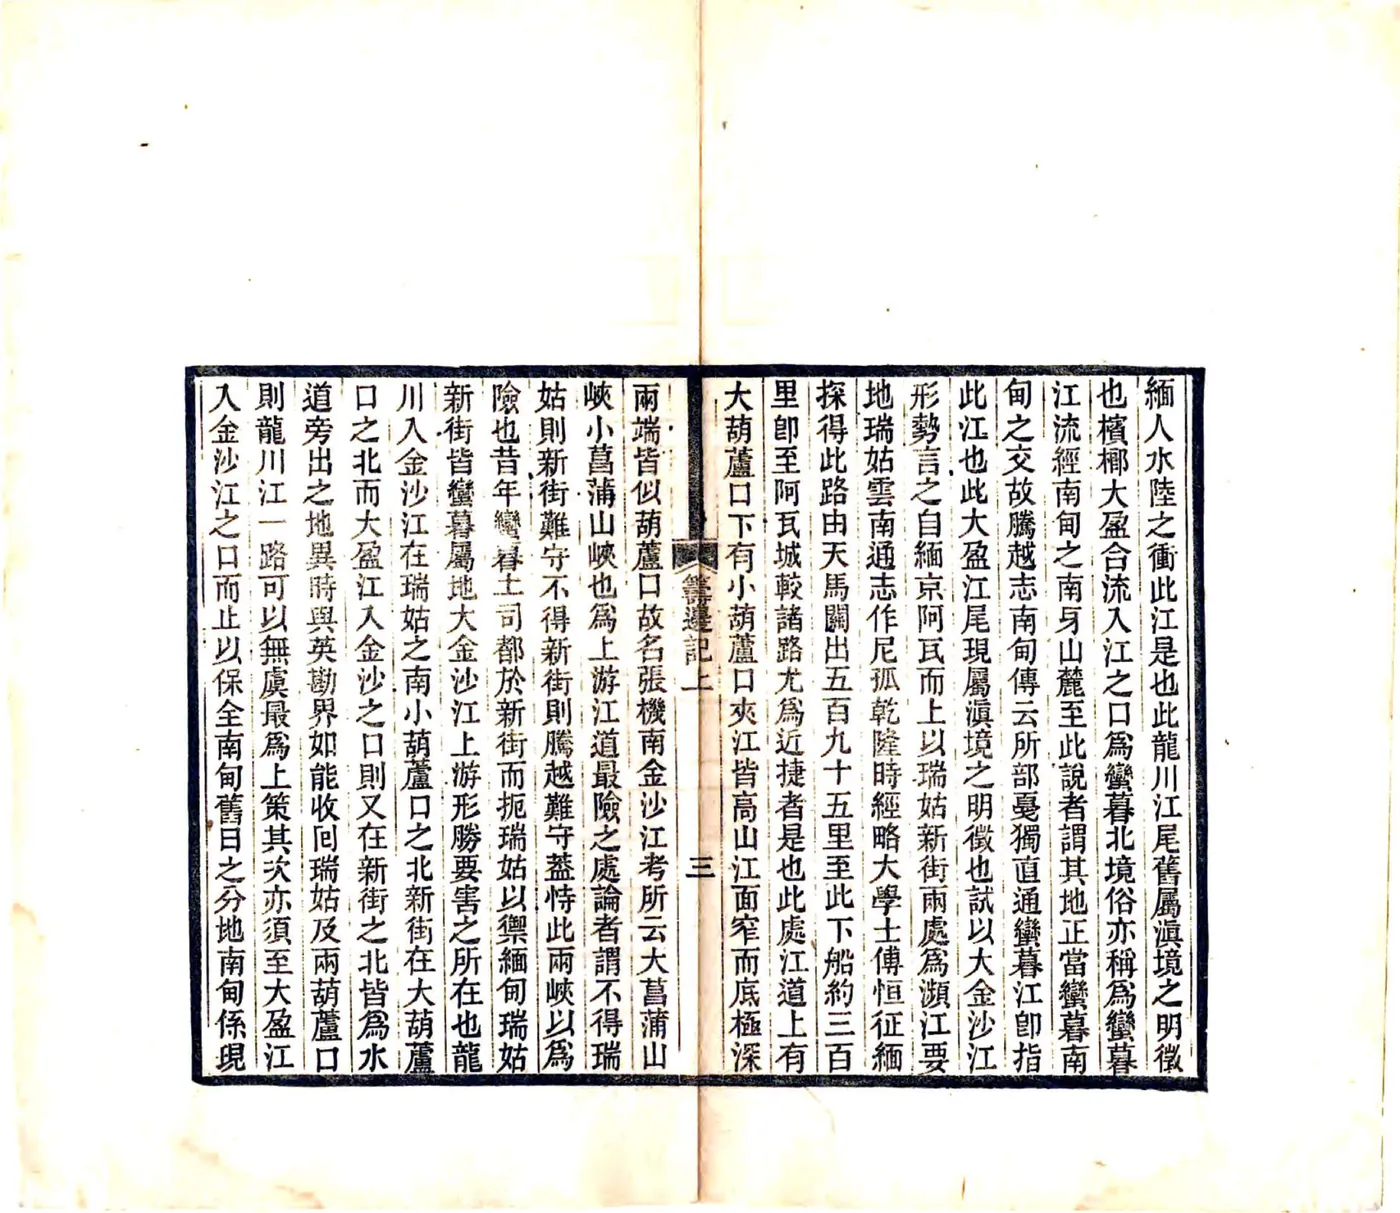 緬人水陸之衝此江是也此龍川江尾舊屬滇境之明徵
也檳榔大盈合流入江之口爲蠻暮北境俗亦稱爲蠻暮
江流經南甸之南身山麓至此說者謂其地正當蠻暮南
甸之交故騰越志南甸傳云所部戞獨直通蠻暮江卽指
此江也此大盈江尾現屬滇境之明徵也試以大金沙江
形勢言之自緬京阿瓦而上以瑞姑新街兩處爲瀕江要
地瑞姑雲南通志作尼孤乾隆時經略大學士傅恒征緬
探得此路由天馬關出五百九十五里至此下船約三百
里卽至阿瓦城較諸路尤爲近捷者是也此處江道上有
大葫蘆口下有小葫蘆口夾江皆高山江面窄而底極深
籌邊記上
三
兩端皆似葫蘆口故名張機南金沙江考所云大菖蒲山
峽小菖蒲山峽也爲上游江道最險之處論者謂不得瑞
姑則新街難守不得新街則騰越難守葢恃此兩峽以爲
險也昔年蠻暮土司都於新街而扼瑞姑以禦緬甸瑞姑
新街皆蠻暮屬地大金沙江上游形勝要害之所在也龍
川入金沙江在瑞姑之南小葫蘆口之北新街在大葫蘆
口之北而大盈江入金沙之口則又在新街之北皆爲水
道旁出之地異時與英勘界如能收囘瑞姑及兩葫蘆口
則龍川江一路可以無虞最爲上策其次亦須至大盈江
入金沙江之口而止以保全南甸舊日之分地南甸係現